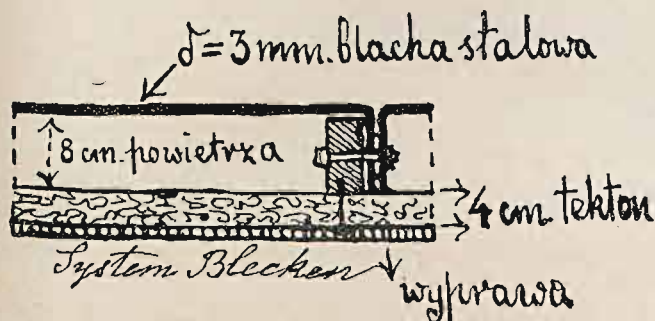 δ=3mm. blacha stalowa
8 cm. powietrza
4 cm. tekton
System Blecken
wyprawa